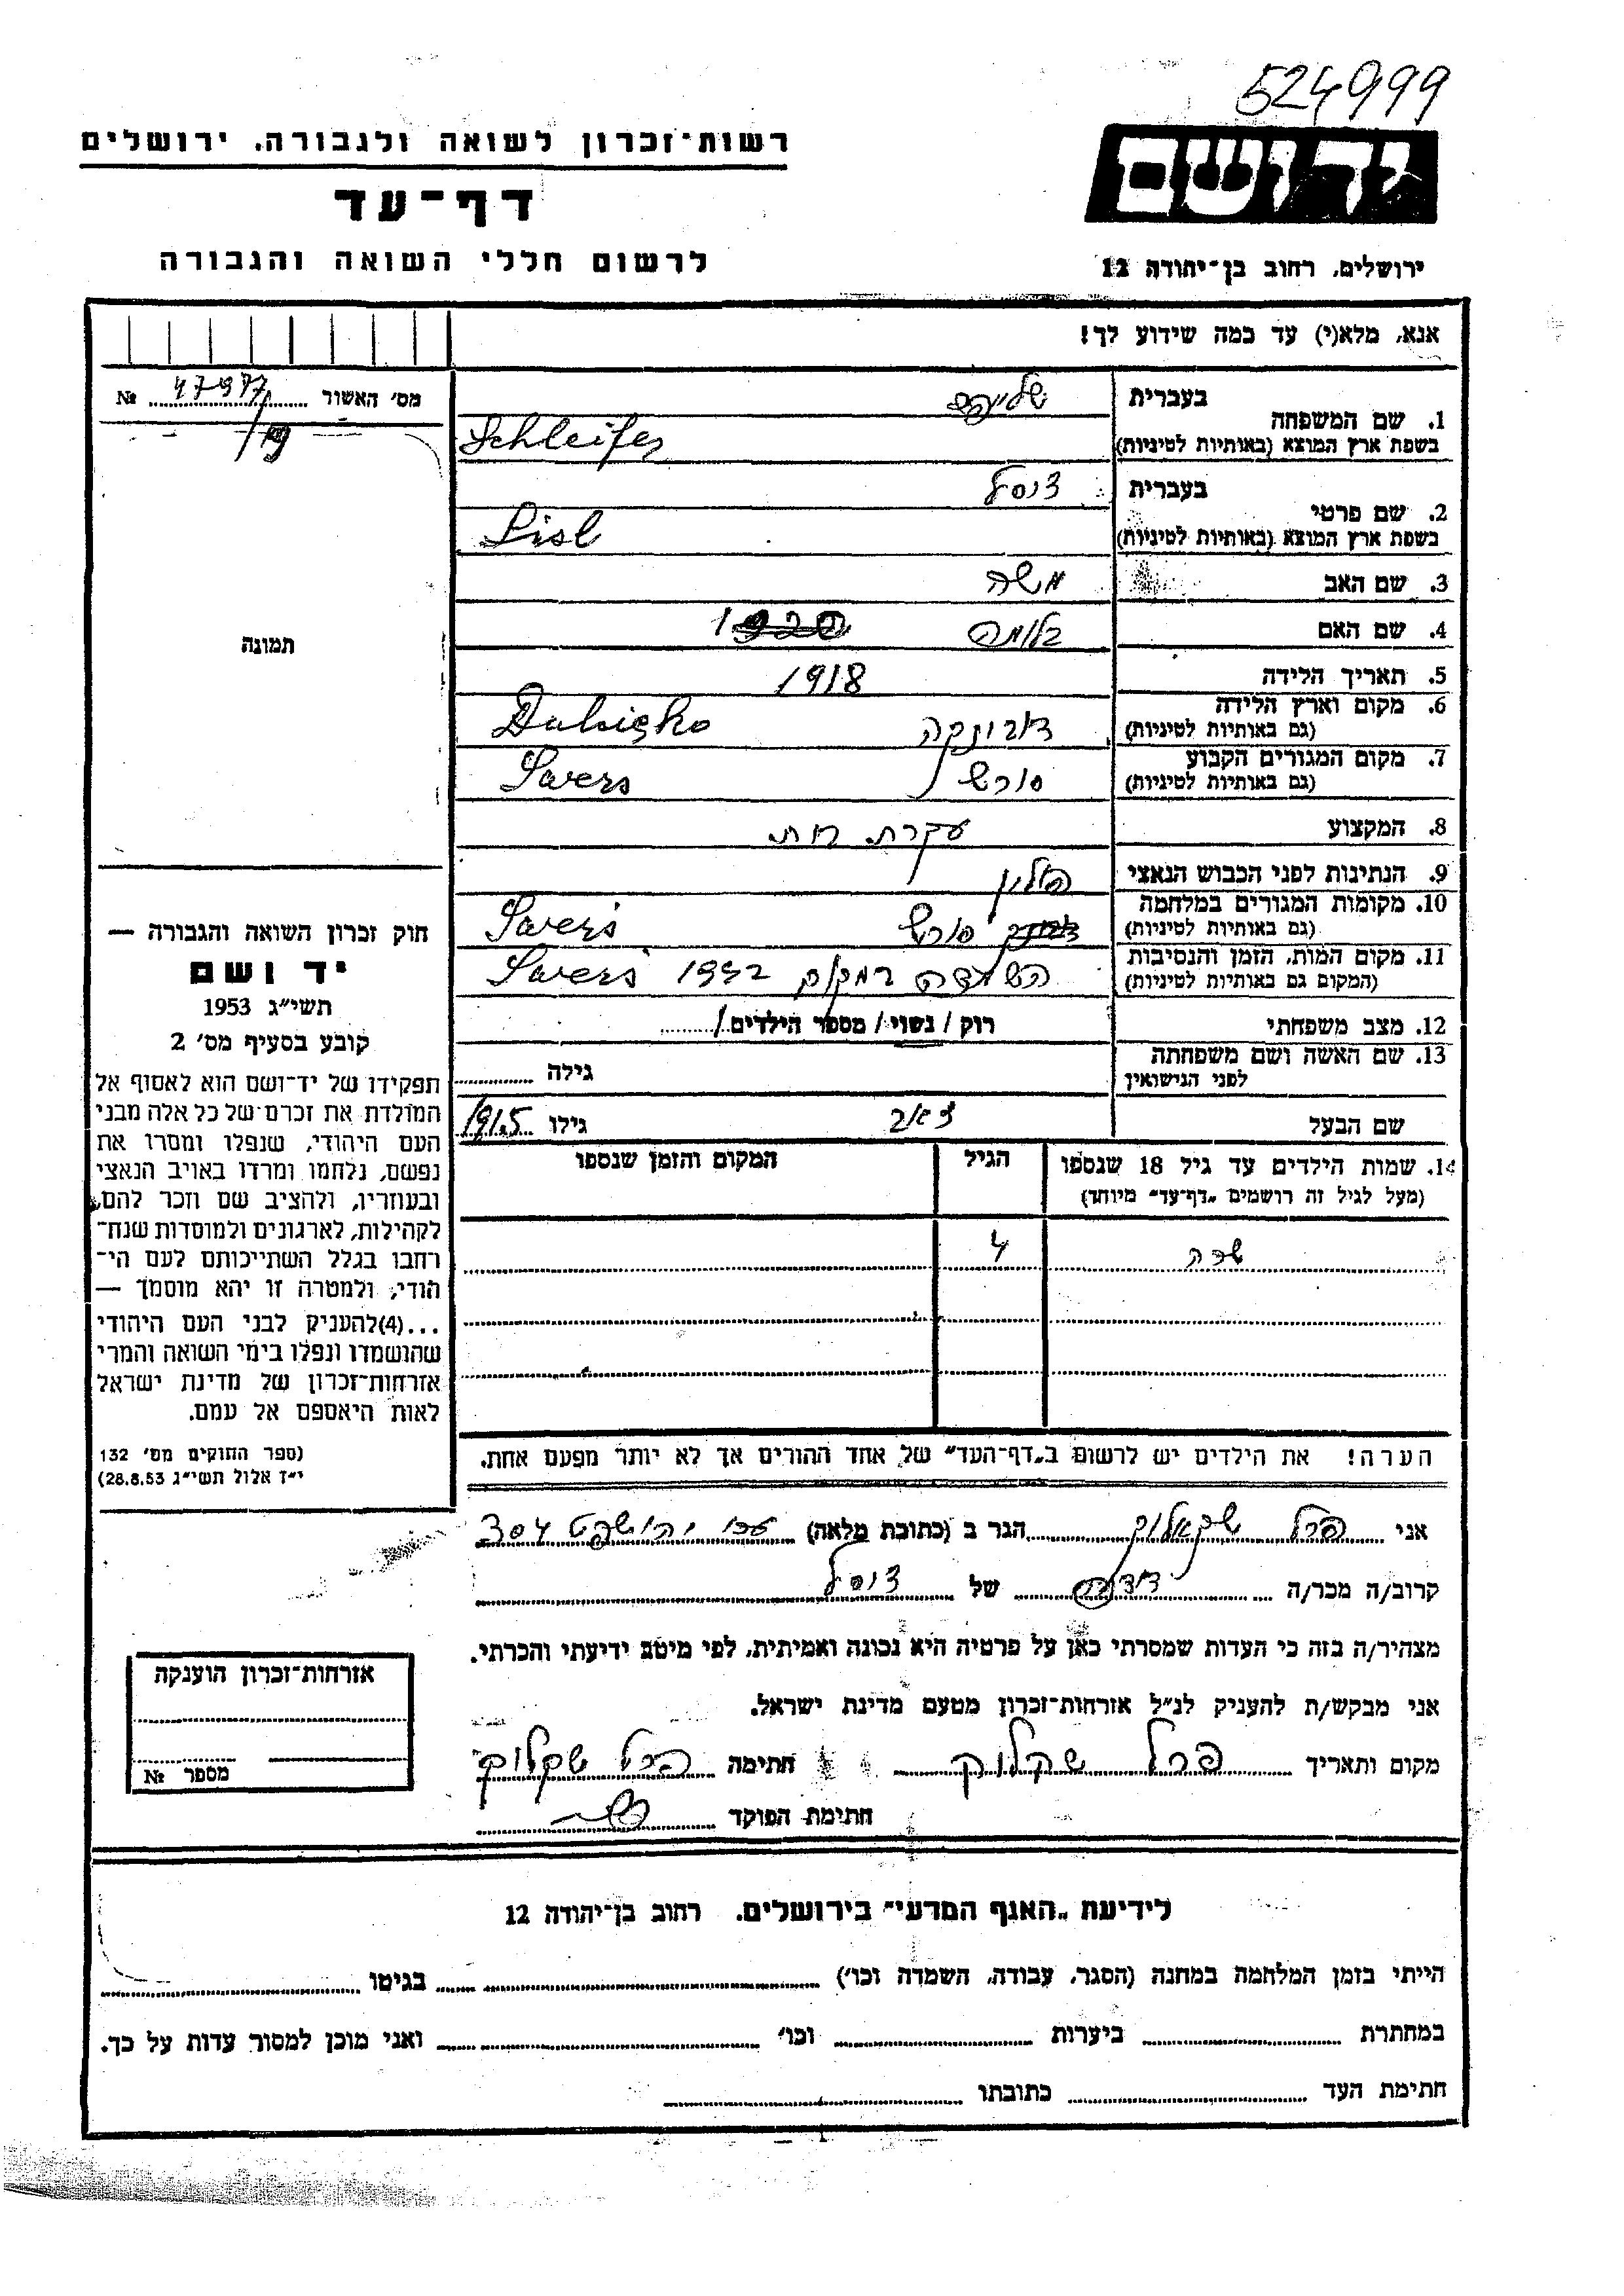 524999
רשות־זכרון לשואה ולגבורה, ירושלים
יד ושם
דף־עד
לרשום חללי השואה והגבורה
ירושלים, רחוב בן־יהודה 12
אנא, מלא(י) עד כמה שידוע לך!
מס' האשור № 47977
1. שם המשפחה
בעברית
בשפת ארץ המוצא (באותיות לטיניות) Schleifer
2. שם פרטי
בעברית
בשפת ארץ המוצא (באותיות לטיניות) Lisl
3. שם האב משה
4. שם האם בלומה
5. תאריך הלידה 1918
6. מקום וארץ הלידה
(גם באותיות לטיניות)
7. מקום המגורים הקבוע
(גם באותיות לטיניות)
8. המקצוע עקרת בית
9. הנתינות לפני הכבוש הנאצי פולין
10. מקומות המגורים במלחמה
(גם באותיות לטיניות)
11. מקום המות, הזמן והנסיבות
(המקום גם באותיות לטיניות) 1942
12. מצב משפחתי רוק / נשוי / מספר הילדים 1
13. שם האשה ושם משפחתה
לפני הנישואין גילה
שם הבעל זאב גילו 1915
14. שמות הילדים עד גיל 18 שנספו
(מעל לגיל זה רושמים „דף־עד” מיוחד)
הגיל
המקום והזמן שנספו
שרה 4
הערה! את הילדים יש לרשום ב„דף־העד” של אחד ההורים אך לא יותר מפעם אחת.
תמונה
חוק זכרון השואה והגבורה —
יד ושם
תשי"ג 1953
קובע בסעיף מס' 2
תפקידו של יד־ושם הוא לאסוף אל
המולדת את זכרם של כל אלה מבני
העם היהודי, שנפלו ומסרו את
נפשם, נלחמו ומרדו באויב הנאצי
ובעוזריו, ולהציב שם וזכר להם,
לקהילות, לארגונים ולמוסדות שנח־
רחבו בגלל השתייכותם לעם הי־
הודי; ולמטרה זו יהא מוסמך —
...(4)להעניק לבני העם היהודי
שהושמדו ונפלו בימי השואה והמרי
אזרחות־זכרון של מדינת ישראל
לאות היאספם אל עמם.
(ספר החוקים מס' 132
י"ז אלול תשי"ג 28.8.53)
אני פרל הגר ב (כתובת מלאה) עכו
קרוב/ה מכר/ה דודה של
מצהיר/ה בזה כי העדות שמסרתי כאן על פרטיה היא נכונה ואמיתית, לפי מיטב ידיעתי והכרתי.
אני מבקש/ת להעניק לנ"ל אזרחות־זכרון מטעם מדינת ישראל.
מקום ותאריך פרל שקלוק חתימה פרל שקלוק
חתימת הפוקד
אזרחות־זכרון הוענקה
מספר №
לידיעת „האגף המדעי” בירושלים. רחוב בן־יהודה 12
הייתי בזמן המלחמה במחנה (הסגר, עבודה, השמדה וכו') בגיטו
במחתרת ביערות וכו' ואני מוכן למסור עדות על כך.
חתימת העד כתובתו